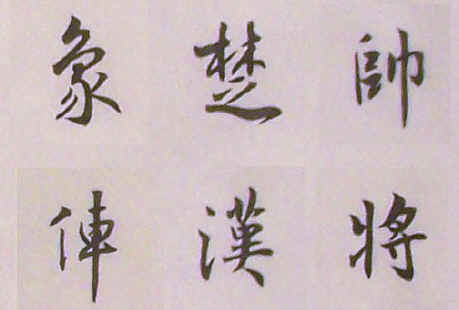 帥將
楚漢
象俥